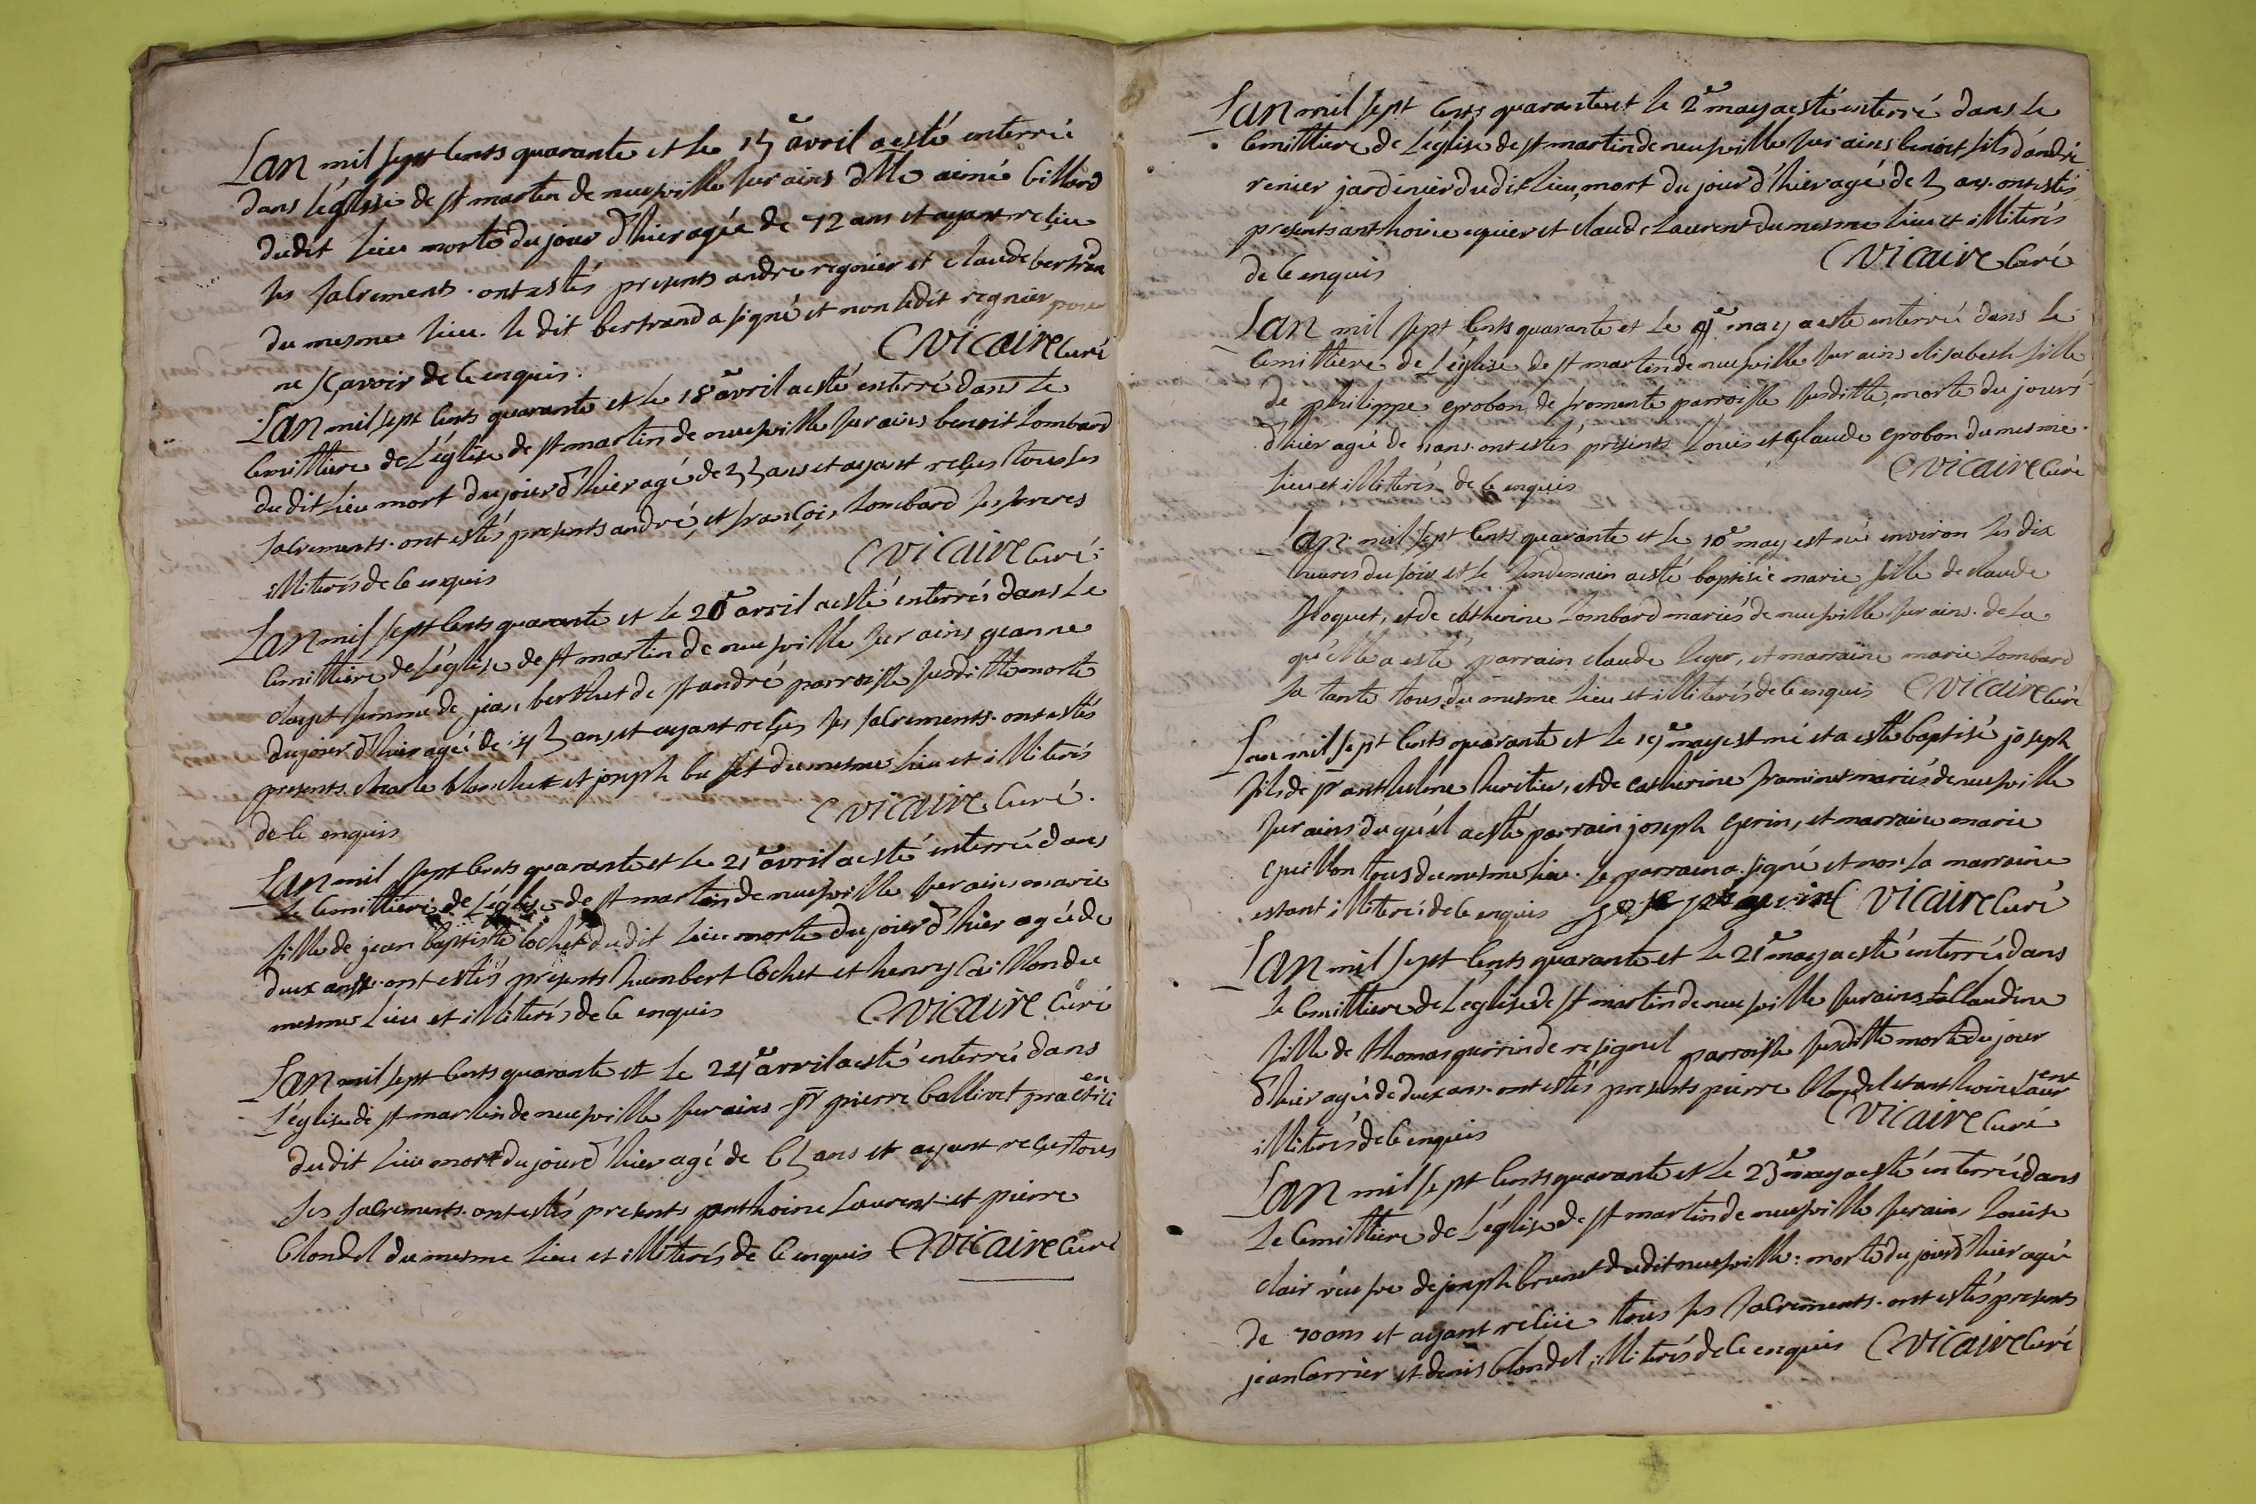 Lan mil sept cents quarante et le 15e avril a esté enterrée
dans l'église de st martin de neufville sur ains dlle aimé billard
dudit lieu morte du jour d'hier agée de 72 ans et ayant recue
ses sacrements. ont estés presents andre regnier et claude bertrand
du mesme lieu. le dit bertrand a signé et non ledit regnier pour
ne sçavoir de ce enquis.
Cvicaire Curé
Lan mil sept cents quarante et le 18e avril a esté enterré dans le
cemittiere de l'église de st martin de neufville sur ains benoit Lombard
du dit lieu mort du jour d'hier agé de 35 ans et ayant recus tous ses
sacrements. ont estés presents andré, et françois Lombard ses freres
illiterés de ce enquis
Cvicaire Curé.
Lan mil sept cents quarante et le 20e avril a esté enterrés dans le
cemittiere de l'église de st martin de neufville sur ains geanne
femme de jean berthet de st andré parroisse susditte morte
du jour d'hier agée de 45 ans et ayant recus ses sacrements. ont estés
presents charle blanchet et joseph du mesme lieu et illiterés
de ce enquis
Cvicaire Curé.
Lan mil sept cents quarante et le 21e avril a esté enterrée dans
le cemittiere de l'église de st martin de neufville sur ains marie
fille de jean baptiste cochet dudit lieu morte du jour d'hier agée de
deux ans. ont estés presents humbert Cochet et henry Caillon du
mesme lieu et illiterés de ce enquis
Cvicaire Curé
Lan mil sept cents quarante et le 24e avril a esté enterré dans
l'église de st martin de neufville sur ains sr pierre ballivet practicien
dudit lieu mort du jour d'hier agé de 65 ans et ayant recus tous
ses sacrements. ont estés presents anthoine Laurent et pierre
blondel du mesme lieu et illiterés de ce enquis Cvicaire Curé
Lan mil sept cents quarante et le 2e may a esté enterré dans le
cemittiere de l'église de st martin de neufville sur ains benoit fils d'andré
renier jardinier dudit lieu, mort du jour d'hier agé de 5 ans. ont estés
presents anthoine et claude Laurent du mesme lieu et illiterés
de ce enquis
Cvicaire Curé
Lan mil sept cents quarante et le may a esté enterrée dans le
cemittiere de l'église de st martin de neufville sur ains elisabeth fille
de philippe grobon de fromente parroisse susditte, morte du jour
d'hier agée de ans. ont estés presents Louis et claude grobon du mesme
lieu et illiterés de ce enquis
Cvicaire Curé
Lan mil sept cents quarante et le 10e may est née environ les dix
heures du soir et le lendemain a esté baptisée marie fille de claude
floquet, et de catherine Lombard mariés de neufville sur ains. de la
qu'elle a esté parrain claude leger, et marraine marie Lombard
sa tante tous du mesme lieu et illiterés de ce enquis Cvicaire Curé
Lan mil sept cents quarante et le 19e may est né et a esté baptisé joseph
fils de sr anthelme heritier, et de catherine framinet mariés de neufville
sur ains du qu'el a esté parrain joseph gerin, et marraine marie
guillon tous du mesme lieu. le parrain a signé et non la marraine
estant illiterée de ce enquis joseph gerin Cvicaire Curé
Lan mil sept cents quarante et le 21e may a esté enterrée dans
le cemittiere de l'eglise de st martin de neufville sur ains Claudine
fille de thomas guirin de resignel parroisse susditte morte du jour
d'hier agée de deux ans. ont estés presents pierre blondel et anthoine Laurent
illiterés de ce enquis
Cvicaire Curé
Lan mil sept cents quarante et le 23e may a esté enterrée dans
le cemittiere de l'église de st martin de neufville sur ains Louise
clair veufve de joseph brunet dudit neufville: morte du jour d'hier agée
de 70 ans et ayant recüe tous ses sacrements. ont estés presents
jean Carrier et denis blondel, illiterés de ce enquis Cvicaire Curé